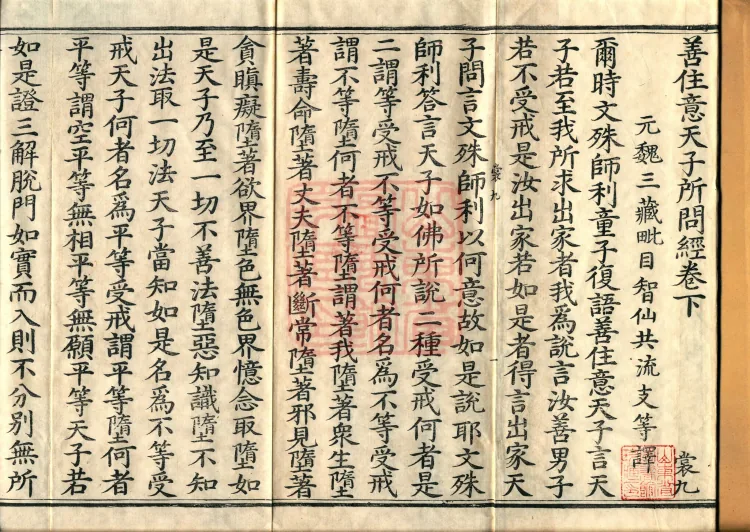 善住意天子所問經卷下
元魏三藏毗目智仙共流支等譯
裳九
爾時文殊師利童子復語善住意天子言天
子若至我所求出家者我為說言汝善男子
若不受戒是汝出家若如是者得言出家天
裳九
一
子問言文殊師利以何意故如是說耶文殊
師利答言天子如佛所說二種受戒何者是
二謂等受戒不等受戒何者名為不等受戒
謂不等墮何者不等墮謂著我墮著衆生墮
著壽命墮著丈夫墮著斷常墮著邪見墮著
貪瞋癡墮著欲界墮色無色界憶念取墮如
是天子乃至一切不善法墮惡知識墮不知
出法取一切法天子當知如是名為不等受
戒天子何者名為平等受戒謂平等墮何者
平等謂空平等無相平等無願平等天子若
如是證三解脫門如實而入則不分別無所